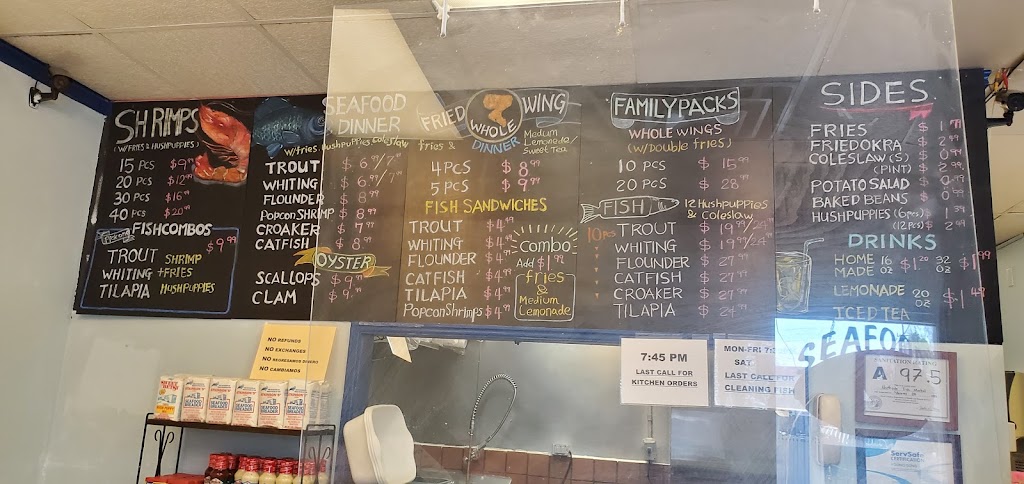 SHRIMPS
(W/FRIES & HUSHPUPPIES)
15 PCS $9
20 PCS $12.99
30 PCS $16
40 PCS $20.99
FISHCOMBOS
$9.99
TROUT SHRIMP
WHITING +FRIES
TILAPIA HUSHPUPPIES
SEAFOOD
DINNER
w/fries, Hushpuppies, Coleslaw
TROUT $6.99/7
WHITING $6.99/7
FLOUNDER $8
POPCORN SHRIMP $8.99
CROAKER $7.99
CATFISH $8.99
OYSTER
SCALLOPS $9
CLAM $9
FRIED WHOLE WING
DINNER
fries &
Medium
Lemonade/
Sweet Tea
4 PCS $8.99
5 PCS $9.99
FISH SANDWICHES
TROUT $4.49
WHITING $4
FLOUNDER $4
CATFISH $4.99
TILAPIA $4.99
PopconShrimps $4.99
Combo
Add $1.92
fries
&
Medium
Lemonade
FAMILYPACKS
WHOLE WINGS
(W/Double fries)
10 PCS $15.99
20 PCS $28.99
FISH
12 Hushpuppies
& Coleslaw
10pcs
TROUT $19.99
WHITING $19.99
FLOUNDER $27.99
CATFISH $27.99
CROAKER $27.99
TILAPIA $24.99
SIDES
FRIES $1
FRIEDOKRA $2
COLESLAW (S) $0
(PINT) $2
POTATO SALAD
BAKED BEANS
HUSHPUPPIES (6pcs) $1
(12Pcs) $2
DRINKS
HOME MADE 16 OZ $1.20 32 OZ $1.99
LEMONADE 20 OZ $1.49
ICED TEA
SEAFOO
NO REFUNDS
NO EXCHANGES
NO REGRESAMOS DINERO
NO CAMBIAMOS
SEAFOOD
BREADER
7:45 PM
LAST CALL FOR
KITCHEN ORDERS
MON-FRI 7:
SAT
LAST CALL FOR
CLEANING FISH
SANITATION RATING
A 97.5
ServSafe